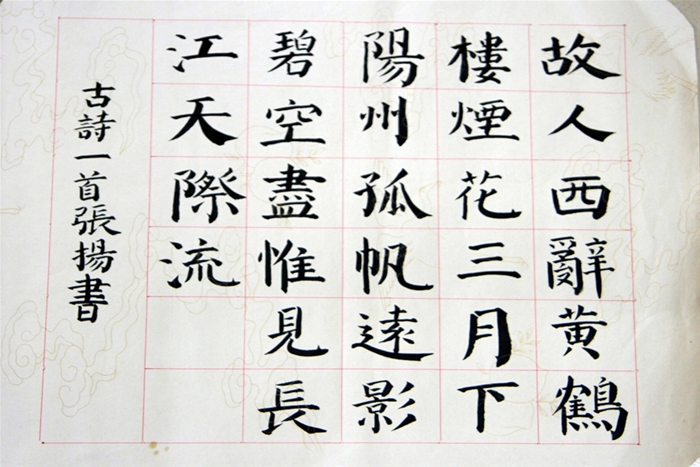 故人西辭黄鶴
樓煙花三月下
陽州孤帆遠影
碧空盡惟見長
江天際流
古詩一首張揚書